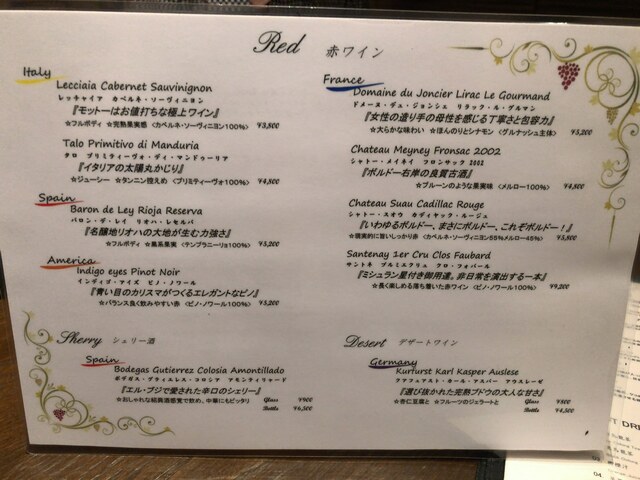 Red 赤ワイン
Italy
Lecciaia Cabernet Sauvinignon
レッチャイア カベルネ・ソーヴィニヨン
『モットーはお値打ちな極上ワイン』
☆フルボディ ☆完熟果実感 〈カベルネ・ソーヴィニヨン100%〉 ¥3,800
Talo Primitivo di Manduria
タロ プリミティーヴォ・ディ・マンドゥーリア
『イタリアの太陽丸かじり』
☆ジューシー ☆タンニン控えめ 〈プリミティーヴォ100%〉 ¥4,800
Spain
Baron de Ley Rioja Reserva
バロン・デ・レイ リオハ・レセルバ
『名醸地リオハの大地が生む力強さ』
☆フルボディ ☆黒系果実 〈テンプラニーリョ100%〉 ¥5,200
America
Indigo eyes Pinot Noir
インディゴ・アイズ ピノ・ノワール
『青い目のカリスマがつくるエレガントなピノ』
☆バランス良く飲みやすい赤 〈ピノ・ノワール100%〉 ¥5,200
France
Domaine du Joncier Lirac Le Gourmand
ドメーヌ・デュ・ジョンシェ リラック・ル・グルマン
『女性の造り手の母性を感じる丁寧さと包容力』
☆大らかな味わい ☆ほんのりとシナモン 〈グルナッシュ主体〉 ¥5,200
Chateau Meyney Fronsac 2002
シャトー・メイネイ フロンサック 2002
『ボルドー右岸の良質古酒』
☆プルーンのような果実味 〈メルロー100%〉 ¥4,800
Chateau Suau Cadillac Rouge
シャトー・スオウ カディヤック・ルージュ
『いわゆるボルドー、まさにボルドー、これぞボルドー！』
☆現実的に旨いしっかり赤 〈カベルネ・ソーヴィニヨン55%メルロー45%〉 ¥5,800
Santenay 1er Cru Clos Faubard
サントネ プルミエクリュ クロ・フォバール
『ミシュラン星付き御用達。非日常を演出する一本』
☆長く楽しめる落ち着いた赤ワイン 〈ピノ・ノワール100%〉 ¥9,200
Sherry シェリー酒
Spain
Bodegas Gutierrez Colosia Amontillado
ボデガス・グティエレス・コロシア アモンティリャード
『エル・ブジで愛された辛口のシェリー』
☆おしゃれな紹興酒感覚で飲め、中華にもピッタリ Glass ¥900
Bottle ¥6,500
Desert デザートワイン
Germany
Kurfurst Karl Kasper Auslese
クアフュアスト・カール・カスパー アウスレーゼ
『選び抜かれた完熟ブドウの大人な甘さ』
☆杏仁豆腐と ☆フルーツのジェラートと Glass ¥800
Bottle ¥4,500